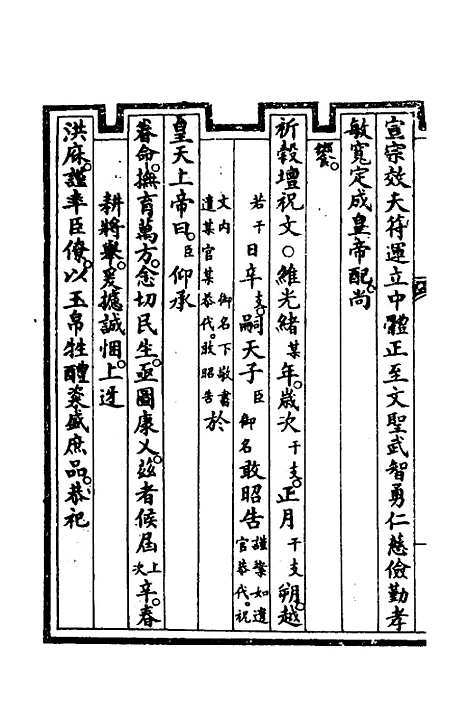 宣宗效天符運立中體正至文聖武智勇仁慈儉勤孝
敏寬定成皇帝配尚
饗。
祈穀壇祝文○維光緒某年。歲次干支。正月干支朔。越
若干日辛支。嗣天子臣御名敢昭告謹案如遣官恭代。祝
文內御名下敬書遣某官某恭代。敢昭告於
皇天上帝曰。臣仰承
眷命。撫育萬方。念切民生。亟圖康乂。茲者候屆上次辛。春
耕將舉。爰攄誠悃。上迓
洪庥。謹率臣僚。以玉帛牲醴粢盛庶品。恭祀